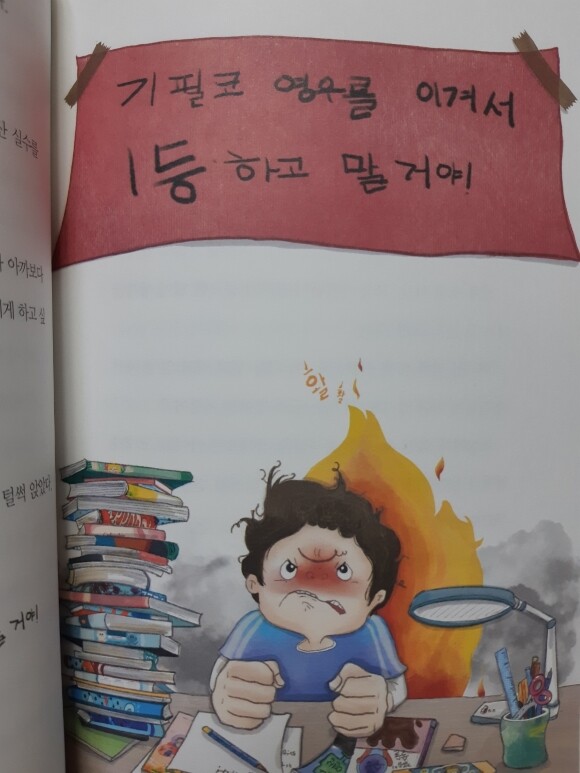 기필코 영우를 이겨서
1등 하고 말 거야!
활활
산 실수를
아까보다
게 하고 싶
털썩 앉았다.
거야!